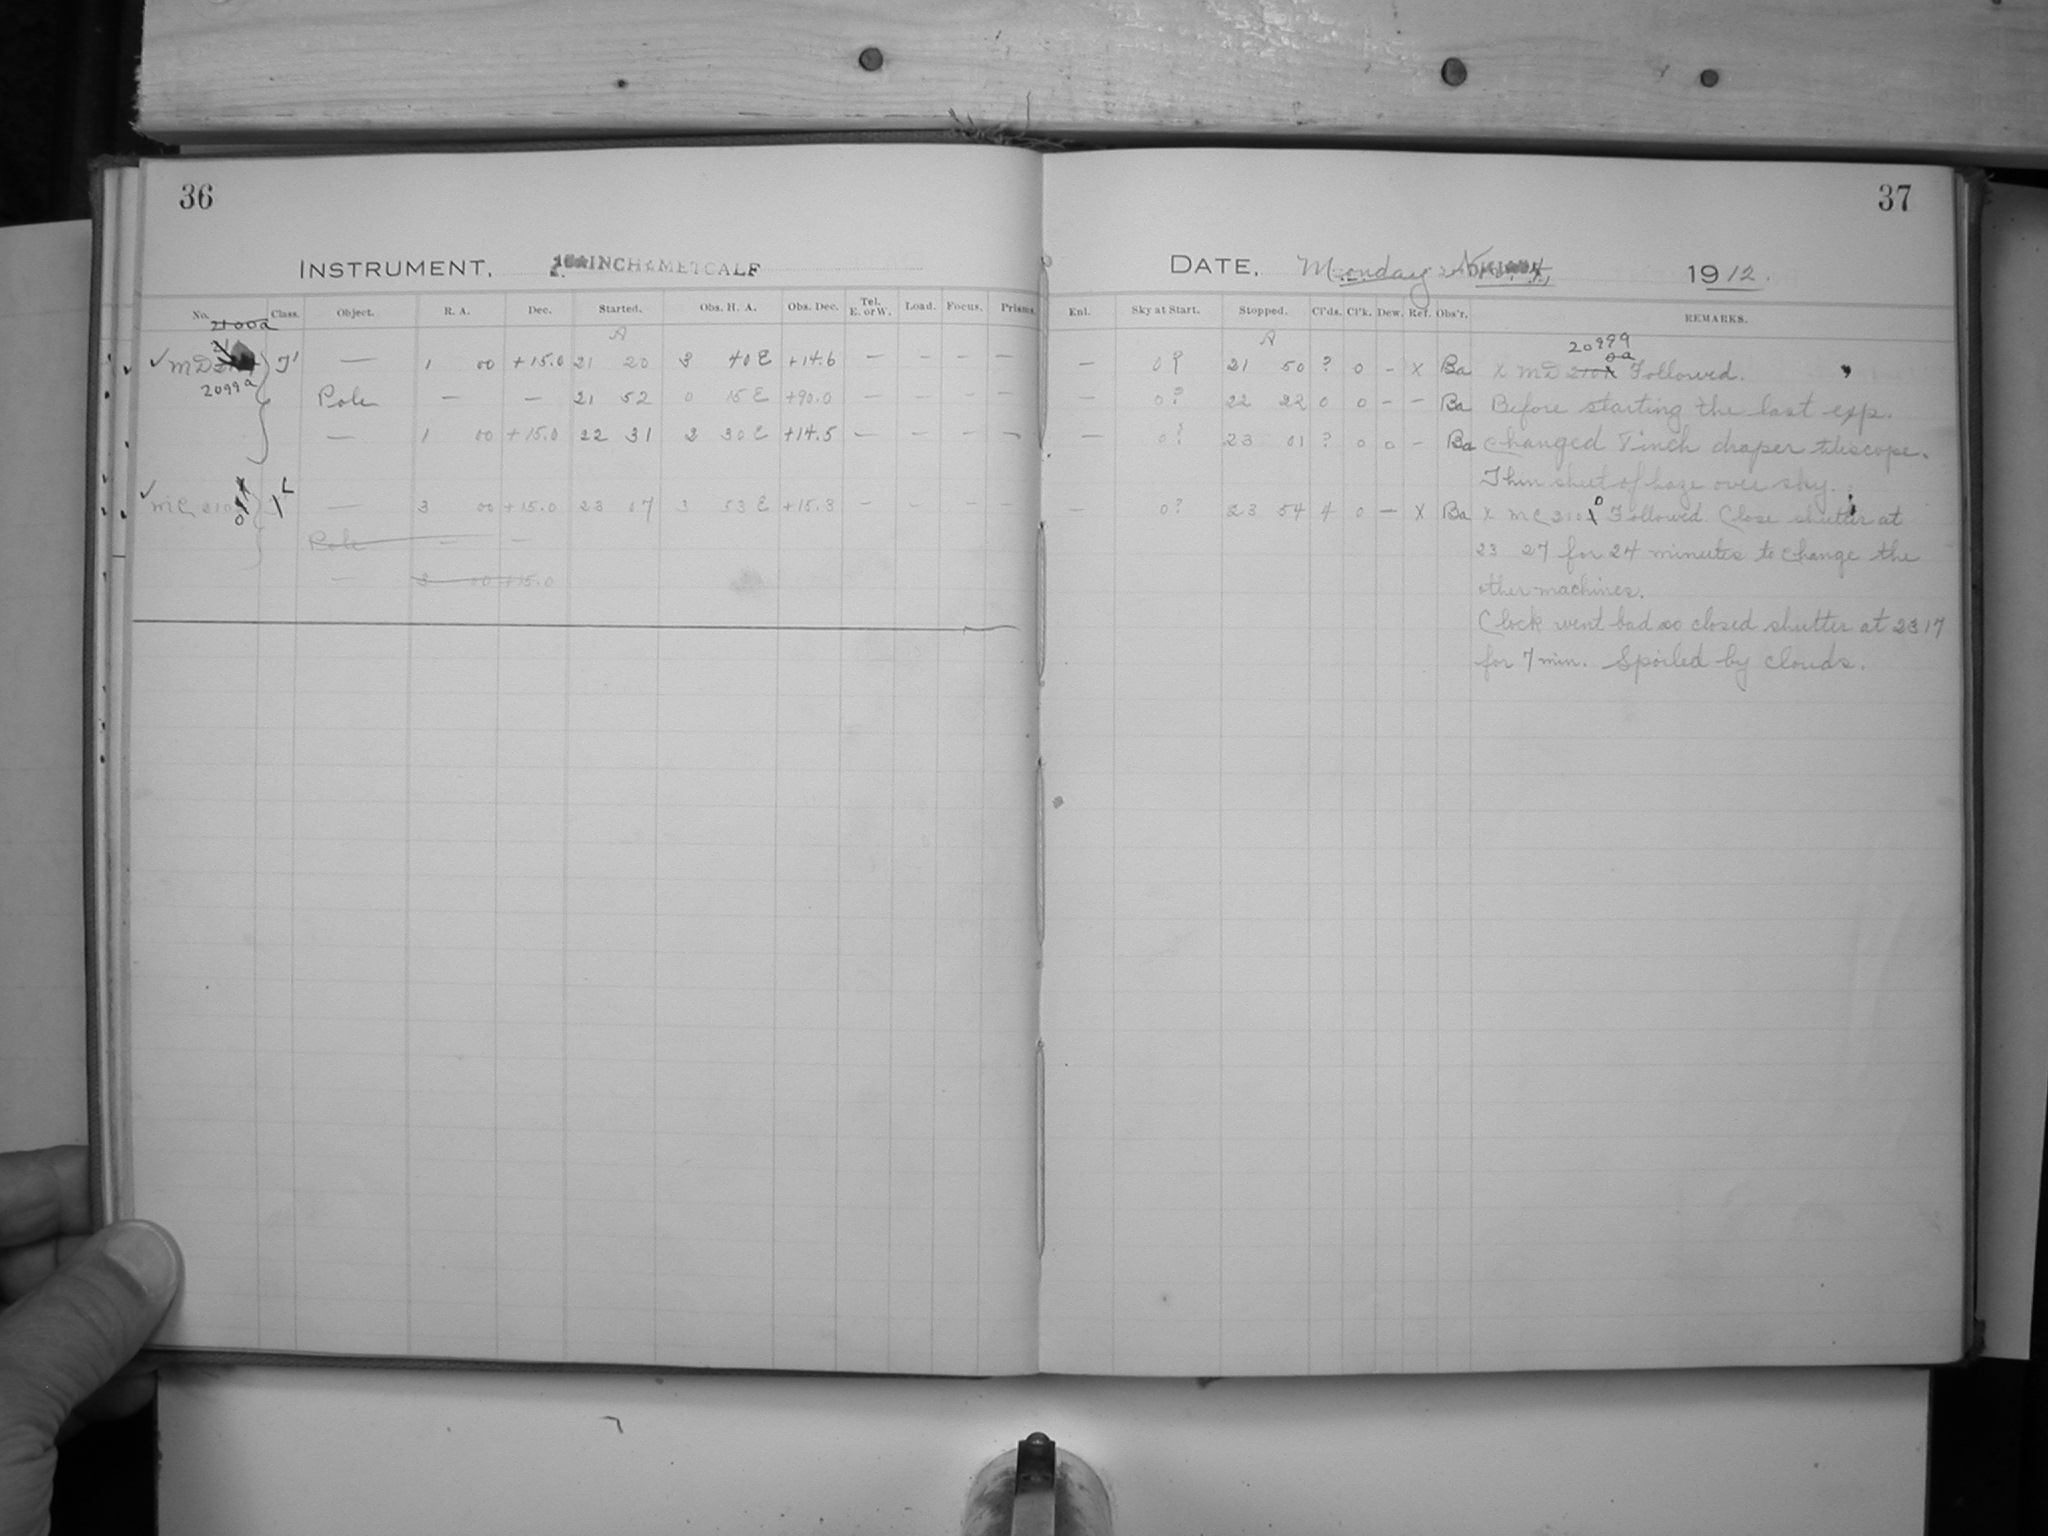 36
INSTRUMENT, INCH METCALF
No. Class. Object. R. A. Dec. Started. Obs. H. A. Obs. Dec. Tel. E. or W. Load. Focus. Prisms.
2100a
A
MD — 1 00 +15.0 21 20 3 40 E +14.6 — — — —
2099a
Pole — — 21 52 0 15 E +90.0 — — — —
— 1 00 +15.0 22 31 2 30 E +14.5 — — — —
MC 210 L — 3 00 +15.0 23 07 3 53 E +15.3 — — — —
Pole — —
— 3 00 +15.0
37
DATE, Monday 1912.
Enl. Sky at Start. Stopped. Cl'ds. Cl'k. Dew. Ref. Obs'r. REMARKS.
A
20999
0a
— 0? 21 50 ? 0 - X Ba X MD Followed.
— 0? 22 22 0 0 - - Ba Before starting the last exp.
— 0? 23 01 ? 0 0 - Ba changed inch draper telescope.
Thin sheet of haze over sky.
— 0? 23 54 4 0 — X Ba X MC 210 0 Followed. Close shutter at
23 27 for 24 minutes to change the
other machines.
Clock went bad so closed shutter at 23 17
for 7 min. Spoiled by clouds.